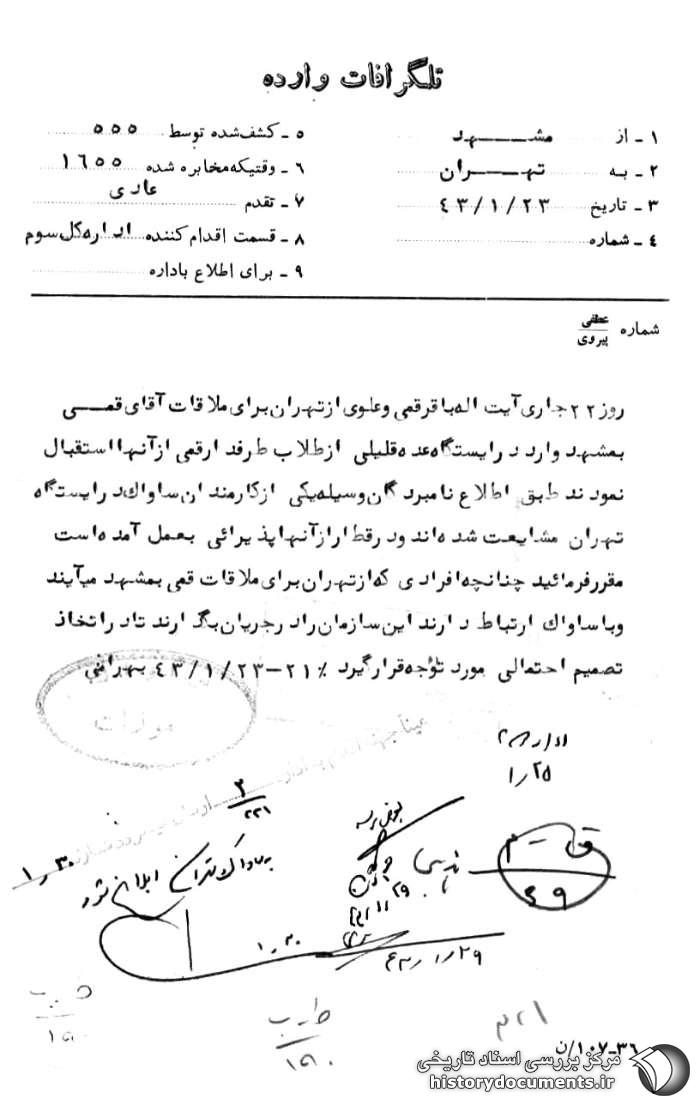 تلگرافات وارده
۱ - از مشهد
۲ - به تهران
۳ - تاریخ ۴۳/۱/۲۳
۴ - شماره
۵ - کشف‌شده توسط ۵۵۵
۶ - وقتیکه مخابره شده ۱۶۵۵
۷ - تقدم عادی
۸ - قسمت اقدام کننده اداره کل سوم
۹ - برای اطلاع باداره
شماره عطفی
پیروی
روز ۲۲ جاری آیت اله باقر قمی و علوی از تهران برای ملاقات آقای قمی
بمشهد وارد در ایستگاه عده قلیلی از طلاب طرفدار قمی از آنها استقبال
نمودند طبق اطلاع نامبردگان وسیله یکی از کارمندان ساواک در ایستگاه
تهران مشایعت شده اند و در قطار از آنها پذیرائی بعمل آمده است
مقرر فرمائید چنانچه افرادی که از تهران برای ملاقات قمی بمشهد میآیند
و با ساواک ارتباط دارند این سازمان را در جریان بگذارند تا در اتخاذ
تصمیم احتمالی مورد توجه قرار گیرد ٪ ۲۱-۴۳/۱/۲۳ بهرامی
۱/۲۵
۳
۲۲۱
بعرض برسد
به ساواک تهران ابلاغ شود
۱/۳۰
۴۹
۴۳/۱/۲۹
۱۵۰
۳۶-۱۰۷/ن
مرکز بررسی اسناد تاریخی
historydocuments.ir